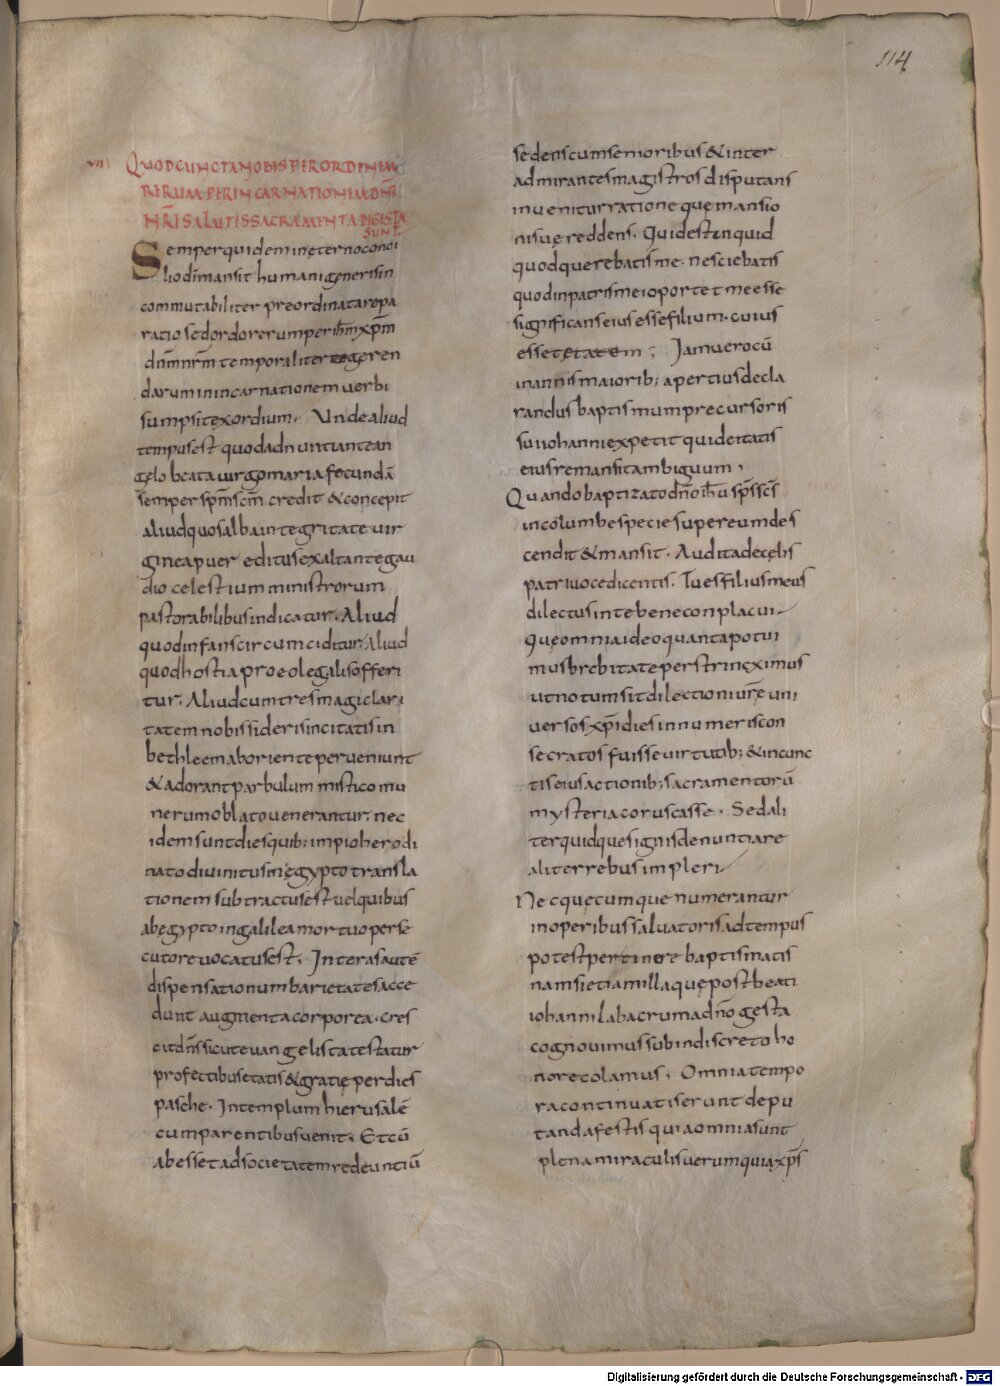 114
VIII QUOD CUNCTA NOBIS PER ORDINEM
RERUM PER INCARNATIONEM DNI
NRI SALUTIS SACRAMENTA DIGESTA
SUNT
Semper quidem in ęterno consi
lio dī mansit humani generis in
commutabiliter preordinata repa
ratio sed ordo rerum per ihm xpm
dnm nrm temporaliter geren
darum in incarnationem verbi
sumpsit exordium. Unde aliud
tempus est quod adnuntiante an
gelo beata uirgo maria fecundā
semper spm scm credit & concepit
aliud quo salba integritate uir
ginea puer editus exaltante gau
dio celestium ministrorum
pastorabilibus indicatur. Aliud
quod infans circumciditur. Aliud
quod hostia pro eo legalis offeri
tur. Aliud cum tres magi clari
tatem nobis sideris incitatis in
bethleem ab oriente perveniunt
& adorant parbulum mistico mu
nerum oblato uenerantur. nec
idem sunt dies quib; impio herodi
nato diuinitus in ęgypto transla
tionem subtractus est uel quibus
ab egypto in galilea mortuo perse
cutore uocatus est. Inter as autē
dispensationum barietates acce
dunt augmenta corporea. cres
cit dns sicut euangelista testatur
profectibus etatis & gratię per dies
pasche. In templum hierusalē
cum parentibus uenit. Et cū
abesset ad societatem redeuntiū
sedens cum semoribus & inter
admirantes magistros disputans
inuenitur rationeque mansio
nis uę reddens. Quid est inquid
quod querebatis me. nesciebatis
quod in patris mei oportet me esse
significans eius esse filium. cuius
esset etatem; Iam uero cū
in annis maiorib; apertius decla
randus baptismum precursoris
sui iohanni expetit quid eitatis
eius remansit ambiguum,
Quando baptizato dno ihu sps scs
in columbe specie super eum des
cendit & mansit. Audita de cęlis
patri uoce dicentis. Tu es filius meus
dilectus in te bene conplacui
Que omnia ideo quanta potui
mus brebitate perstrinximus
ut notum sit dilectioni urę uni
uersos xpi dies innumeris con
secratos fuisse uirtutib; & in cunc
tis eius actionib; sacramentorū
mysteria coruscasse. Sed ali
ter quidque signis denuntiare
aliter rebus impleri
Nec quecumque numerantur
in operibus saluatoris ad tempus
potest pertinere baptismatis
nam si etiam illa quę post beati
iohanni labacrum a dno gesta
cognouimus sub indiscreto ho
nore colamus. Omnia tempo
ra continuati serunt depu
tanda festis quia omnia sunt
plena miraculis uerum quia xps
Digitalisierung gefördert durch die Deutsche Forschungsgemeinschaft - DFG